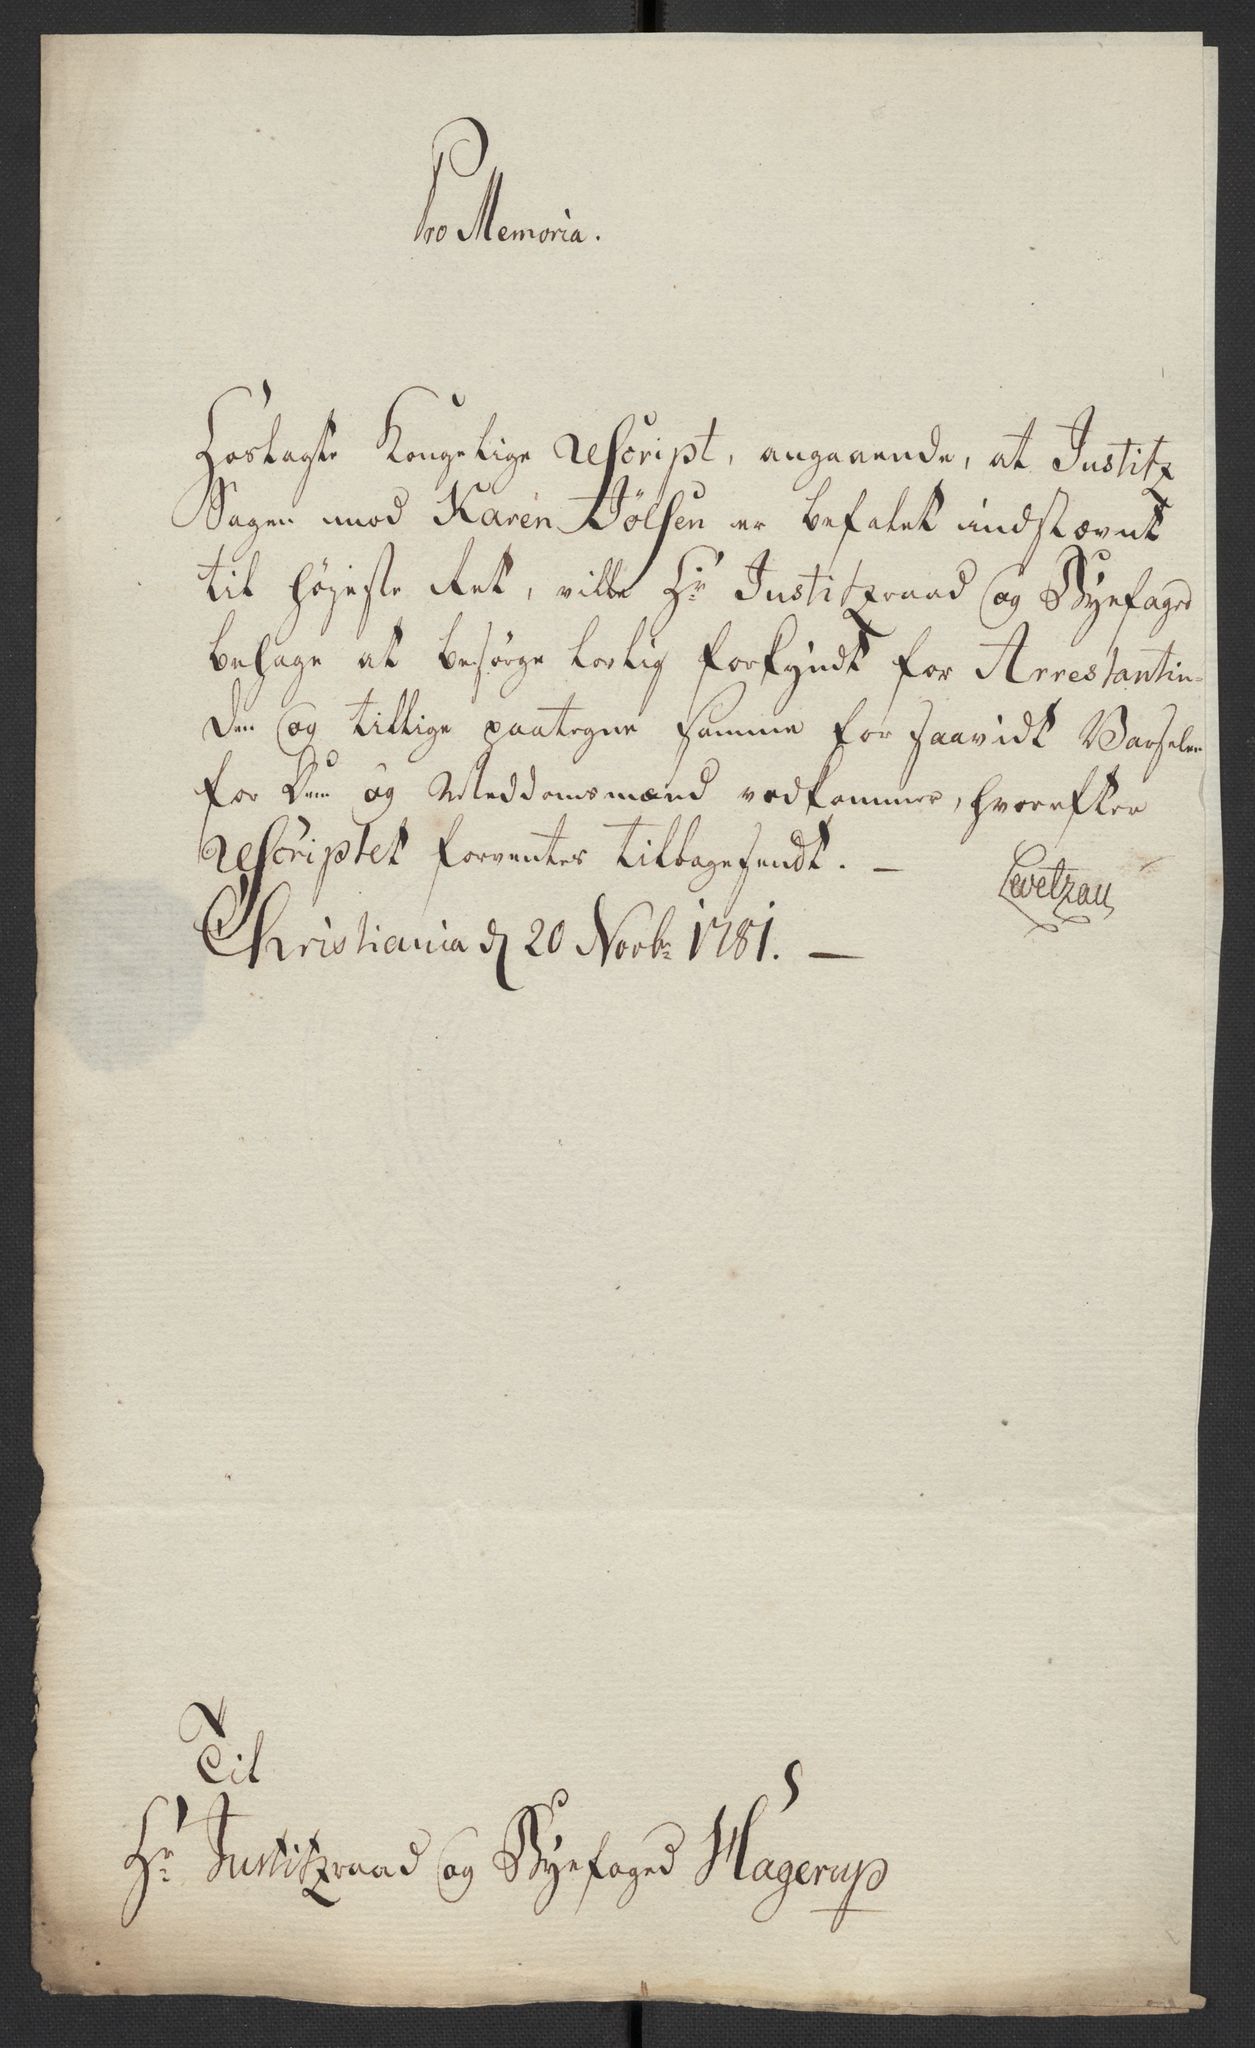 Pro Memoria.
Hoslagte Kongelige Rescript, angaaende, at Justitz
Sagen mod Karen Jölsen er befalet indstævnt
til Højeste Ret, ville Hr Justitzraad og Byefoged
behage at besørge lovlig forkyndt for Arrestantin-
den og tillige paategne samme for saavidt Varselen
for Dem og Meddomsmænd vedkommer, hvorefter
Rescriptet forventes tilbagesendt. —
Levetzau
Christiania d 20 Novbr 1781. —
Til
Hr Justitzraad og Byefoged Hagerup